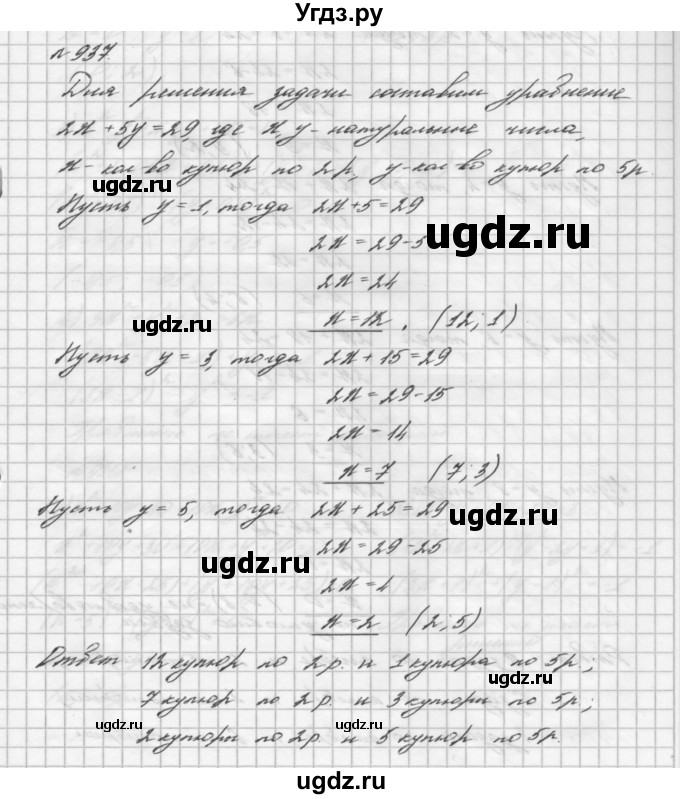 Угдз.ру
№937.
Для решения задачи составим уравнение
2x+5y=29 где x, y - натуральные числа,
x - кол-во купюр по 2 р., y - кол-во купюр по 5р.
ugdz.ru
Пусть y=1, тогда 2x+5=29
ugdz.ru
2x = 29-5
2x = 24
ugdz.ru
x = 12. (12; 1)
Пусть y = 3, тогда 2x + 15 = 29
2x = 29-15
2x = 14
x = 7 (7; 3)
Пусть y = 5, тогда 2x + 25 = 29
ugdz.ru
2x = 29-25
ugdz.ru
2x = 4
x = 2 (2; 5)
Ответ 12 купюр по 2р. и 1 купюра по 5р;
ugdz.ru
7 купюр по 2р. и 3 купюры по 5р;
ugdz.ru ugdz.ru
2 купюры по 2р. и 5 купюр по 5р.
ugdz.ru